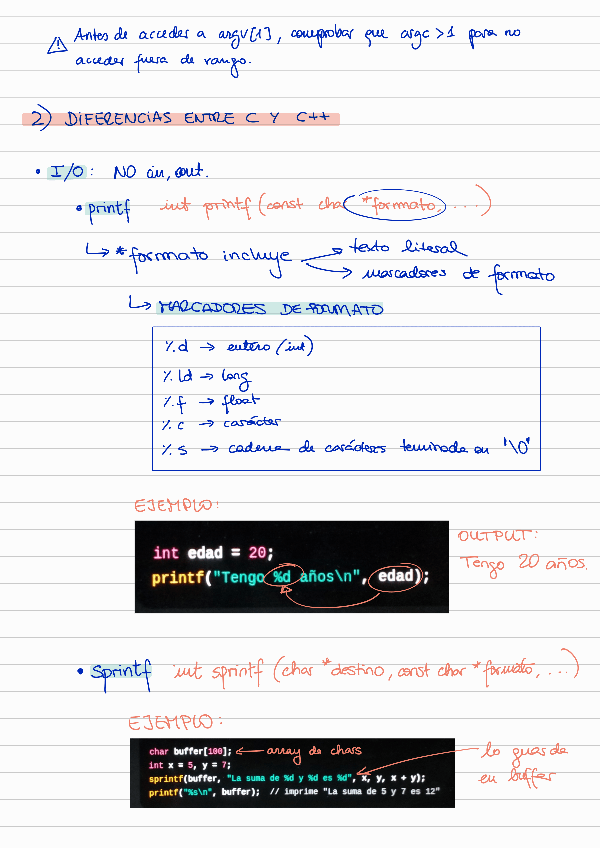 ⚠ Antes de acceder a argv[1], comprobar que argc >1 para no
acceder fuera de rango.
2) DIFERENCIAS ENTRE C Y C++
• I/O: NO cin, cout.
• printf int printf (const char *formato, ...)
↳ *formato incluye → texto literal
→ marcadores de formato
↳ MARCADORES DE FORMATO
%d → entero (int)
%ld → long
%f → float
%c → carácter
%s → cadena de carácteres terminada en '\0'
EJEMPLO:
int edad = 20;
printf("Tengo %d años\n", edad);
OUTPUT:
Tengo 20 años.
• Sprintf int sprintf (char *destino, const char *formato, ...)
EJEMPLO:
char buffer[100]; ← array de chars
int x = 5, y = 7;
sprintf(buffer, "La suma de %d y %d es %d", x, y, x + y);
printf("%s\n", buffer); // imprime "La suma de 5 y 7 es 12"
lo guarda
en buffer